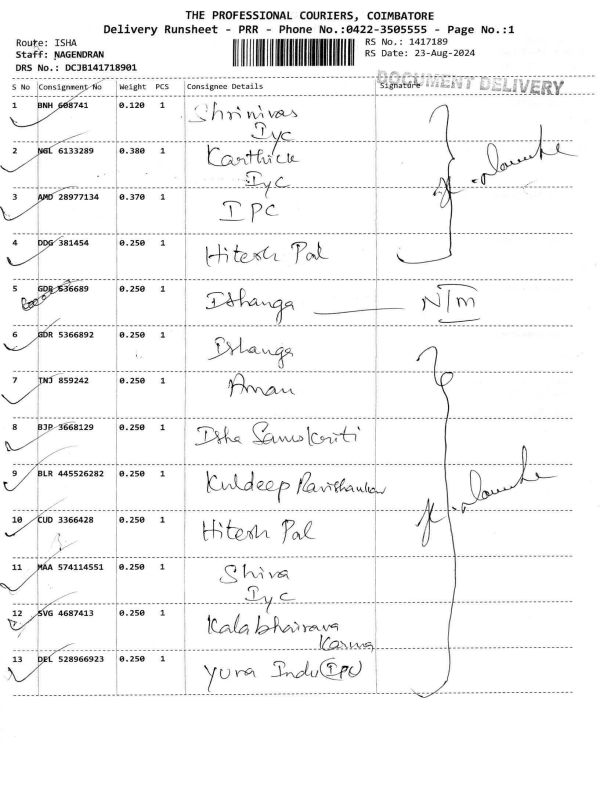 THE PROFESSIONAL COURIERS, COIMBATORE
Delivery Runsheet - PRR - Phone No.:0422-3505555 - Page No.:1
Route: ISHA RS No.: 1417189
Staff: NAGENDRAN RS Date: 23-Aug-2024
DRS No.: DCJB141718901
DOCUMENT DELIVERY
S No Consignment No Weight PCS Consignee Details Signature
1 BNH 608741 0.120 1 Shrinivas
Iyc
2 NGL 6133289 0.380 1 Karthick
Iyc
3 AMD 28977134 0.370 1 IPC
4 DDG 381454 0.250 1 Hitesh Pal
5 GDR 536689 0.250 1 Ishanga N/m
6 GDR 5366892 0.250 1 Ishanga
7 TNJ 859242 0.250 1 Aman
8 BJP 3668129 0.250 1 Isha Samskriti
9 BLR 445526282 0.250 1 Kuldeep Ravishankar
10 CUD 3366428 0.250 1 Hitesh Pal
11 MAA 574114551 0.250 1 Shiva
Iyc
12 SVG 4687413 0.250 1 Kalabhairava
Karma
13 DEL 528966923 0.250 1 Yura Indu (IPC)